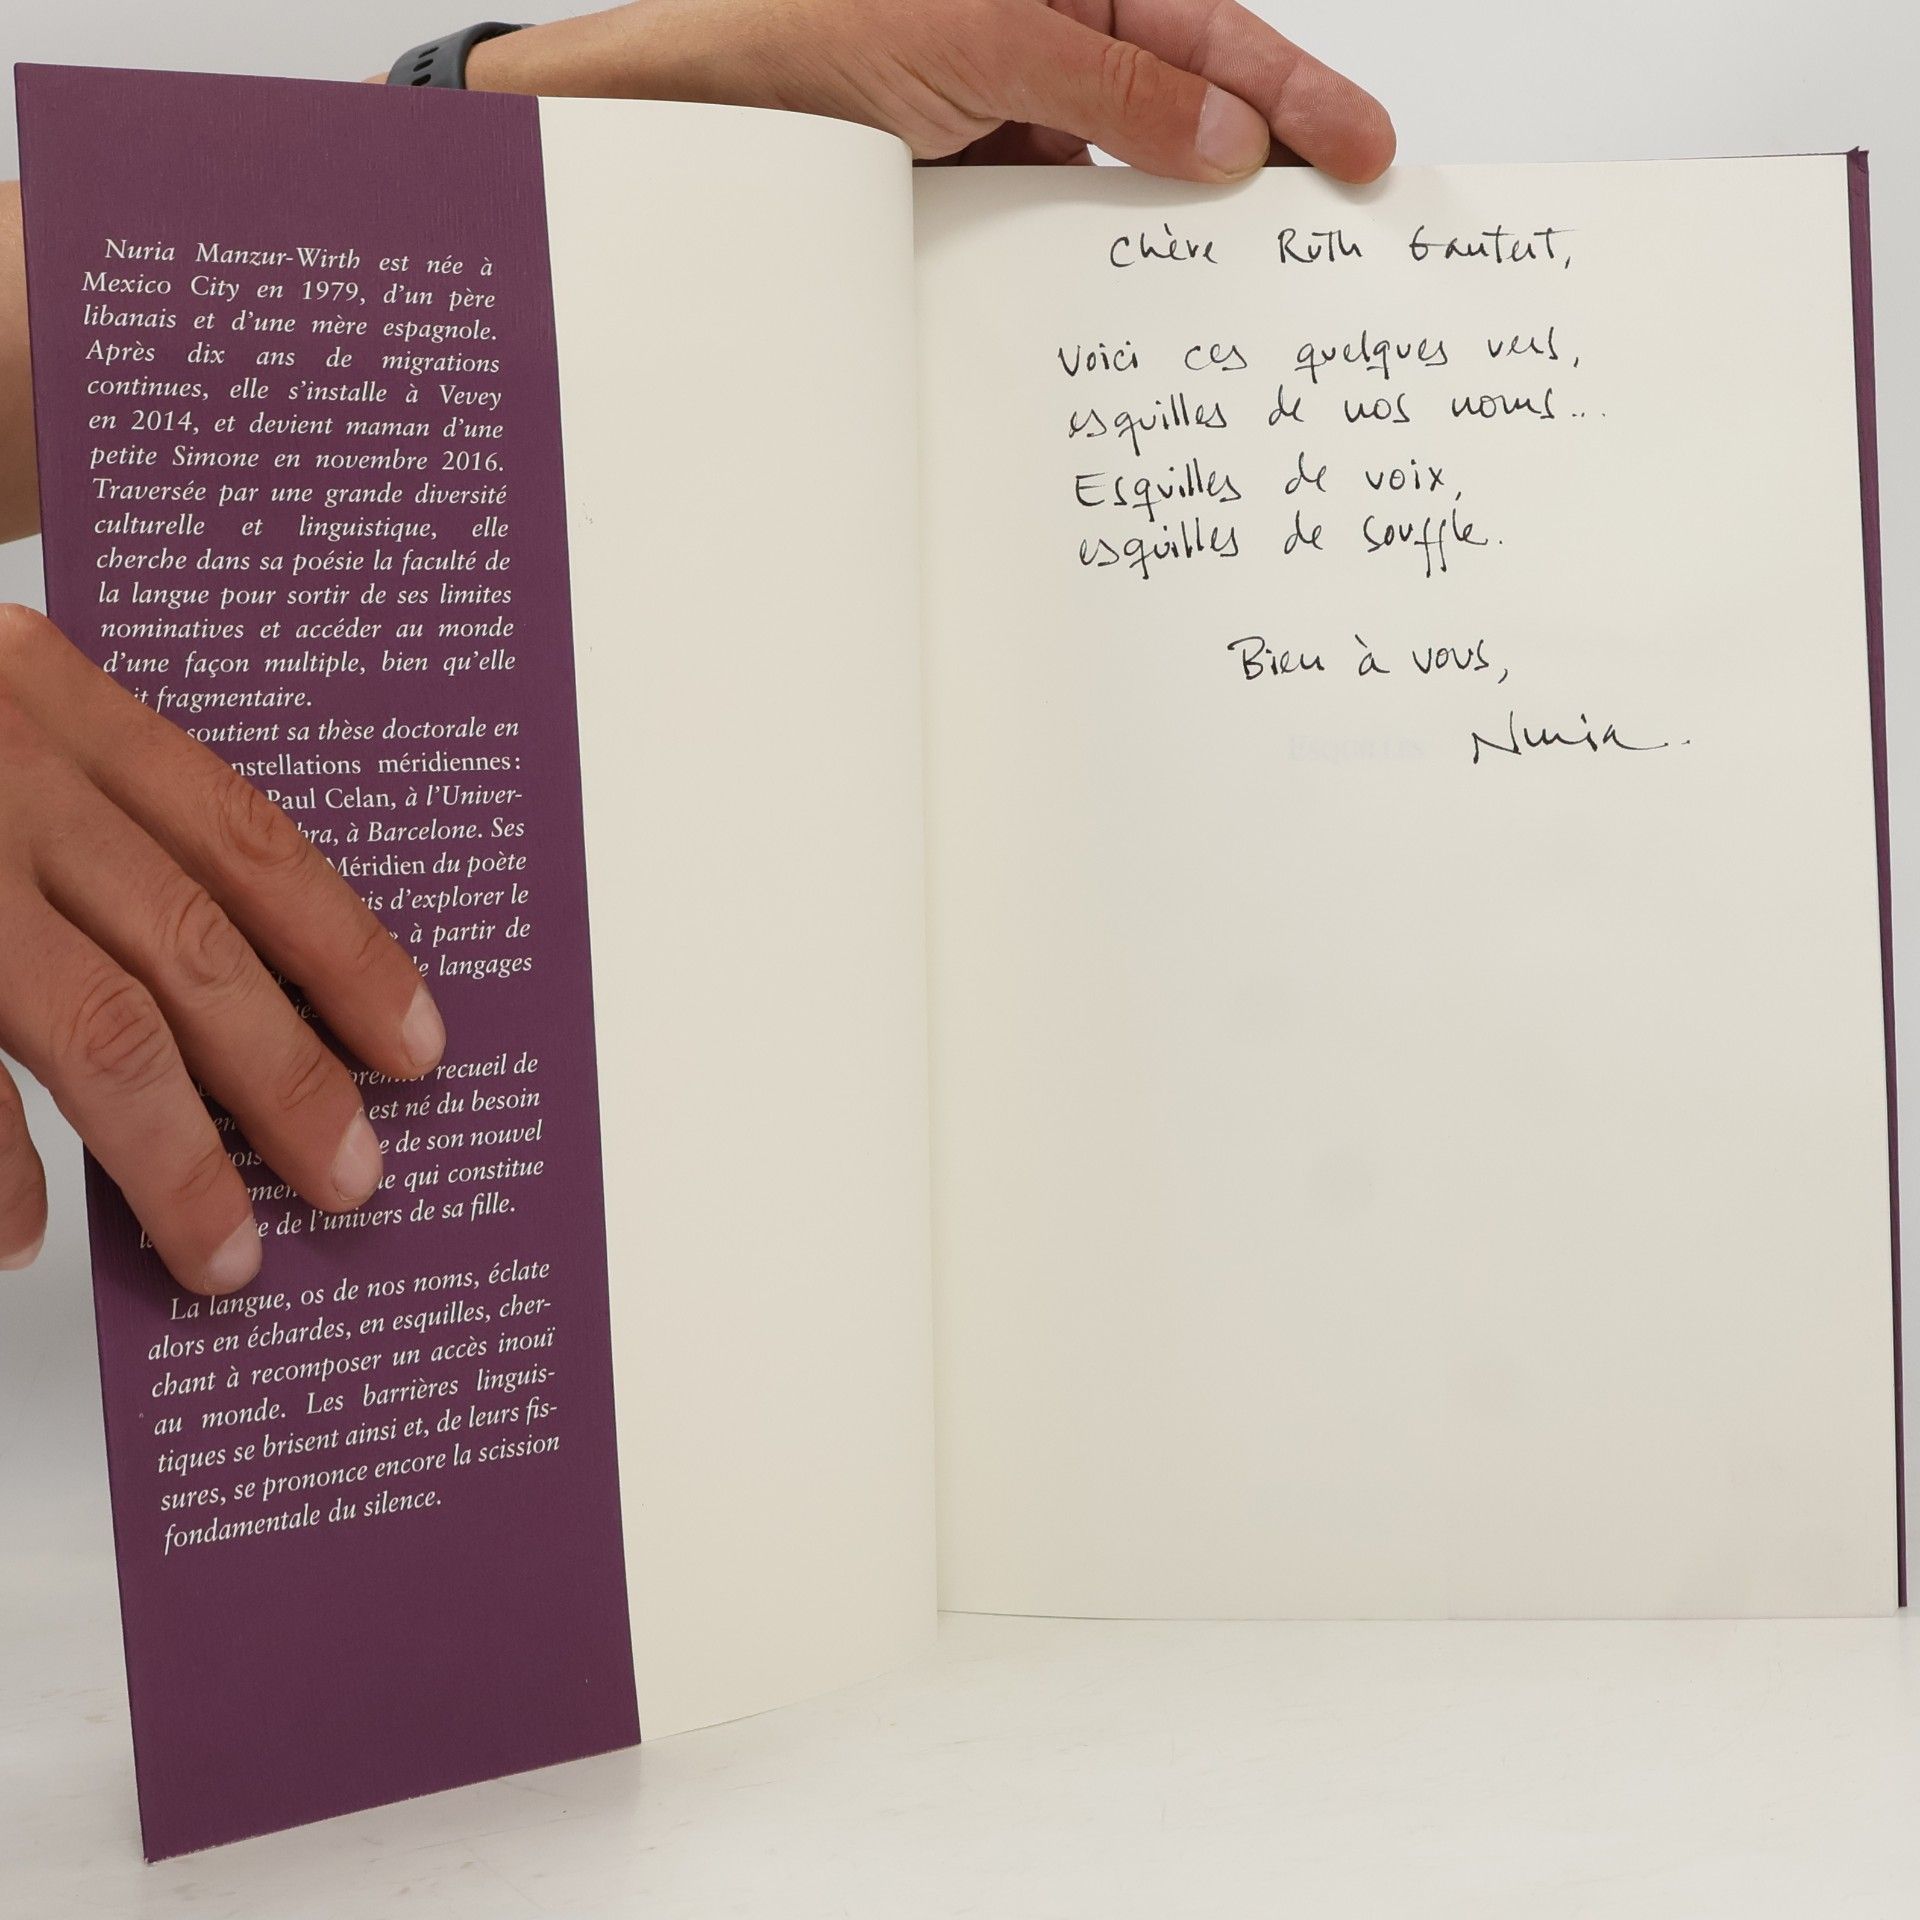 Nuria Manzur-Wirth est née à
Mexico City en 1979, d'un père
libanais et d'une mère espagnole.
Après dix ans de migrations
continues, elle s'installe à Vevey
en 2014, et devient maman d'une
petite Simone en novembre 2016.
Traversée par une grande diversité
culturelle et linguistique, elle
cherche dans sa poésie la faculté de
la langue pour sortir de ses limites
nominatives et accéder au monde
d'une façon multiple, bien qu'elle
fragmentaire.
soutient sa thèse doctorale en
nstellations méridiennes:
Paul Celan, à l'Univer-
bra, à Barcelone. Ses
Méridien du poète
is d'explorer le
» à partir de
langages
recueil de
est né du besoin
e de son nouvel
qui constitue
de l'univers de sa fille.
La langue, os de nos noms, éclate
alors en échardes, en esquilles, cher-
chant à recomposer un accès inouï
au monde. Les barrières linguis-
tiques se brisent ainsi et, de leurs fis-
sures, se prononce encore la scission
fondamentale du silence.
Chère Ruth Gantert,
Voici ces quelques vers,
esquilles de nos noms...
Esquilles de voix,
esquilles de souffle.
Bien à vous,
Nuria